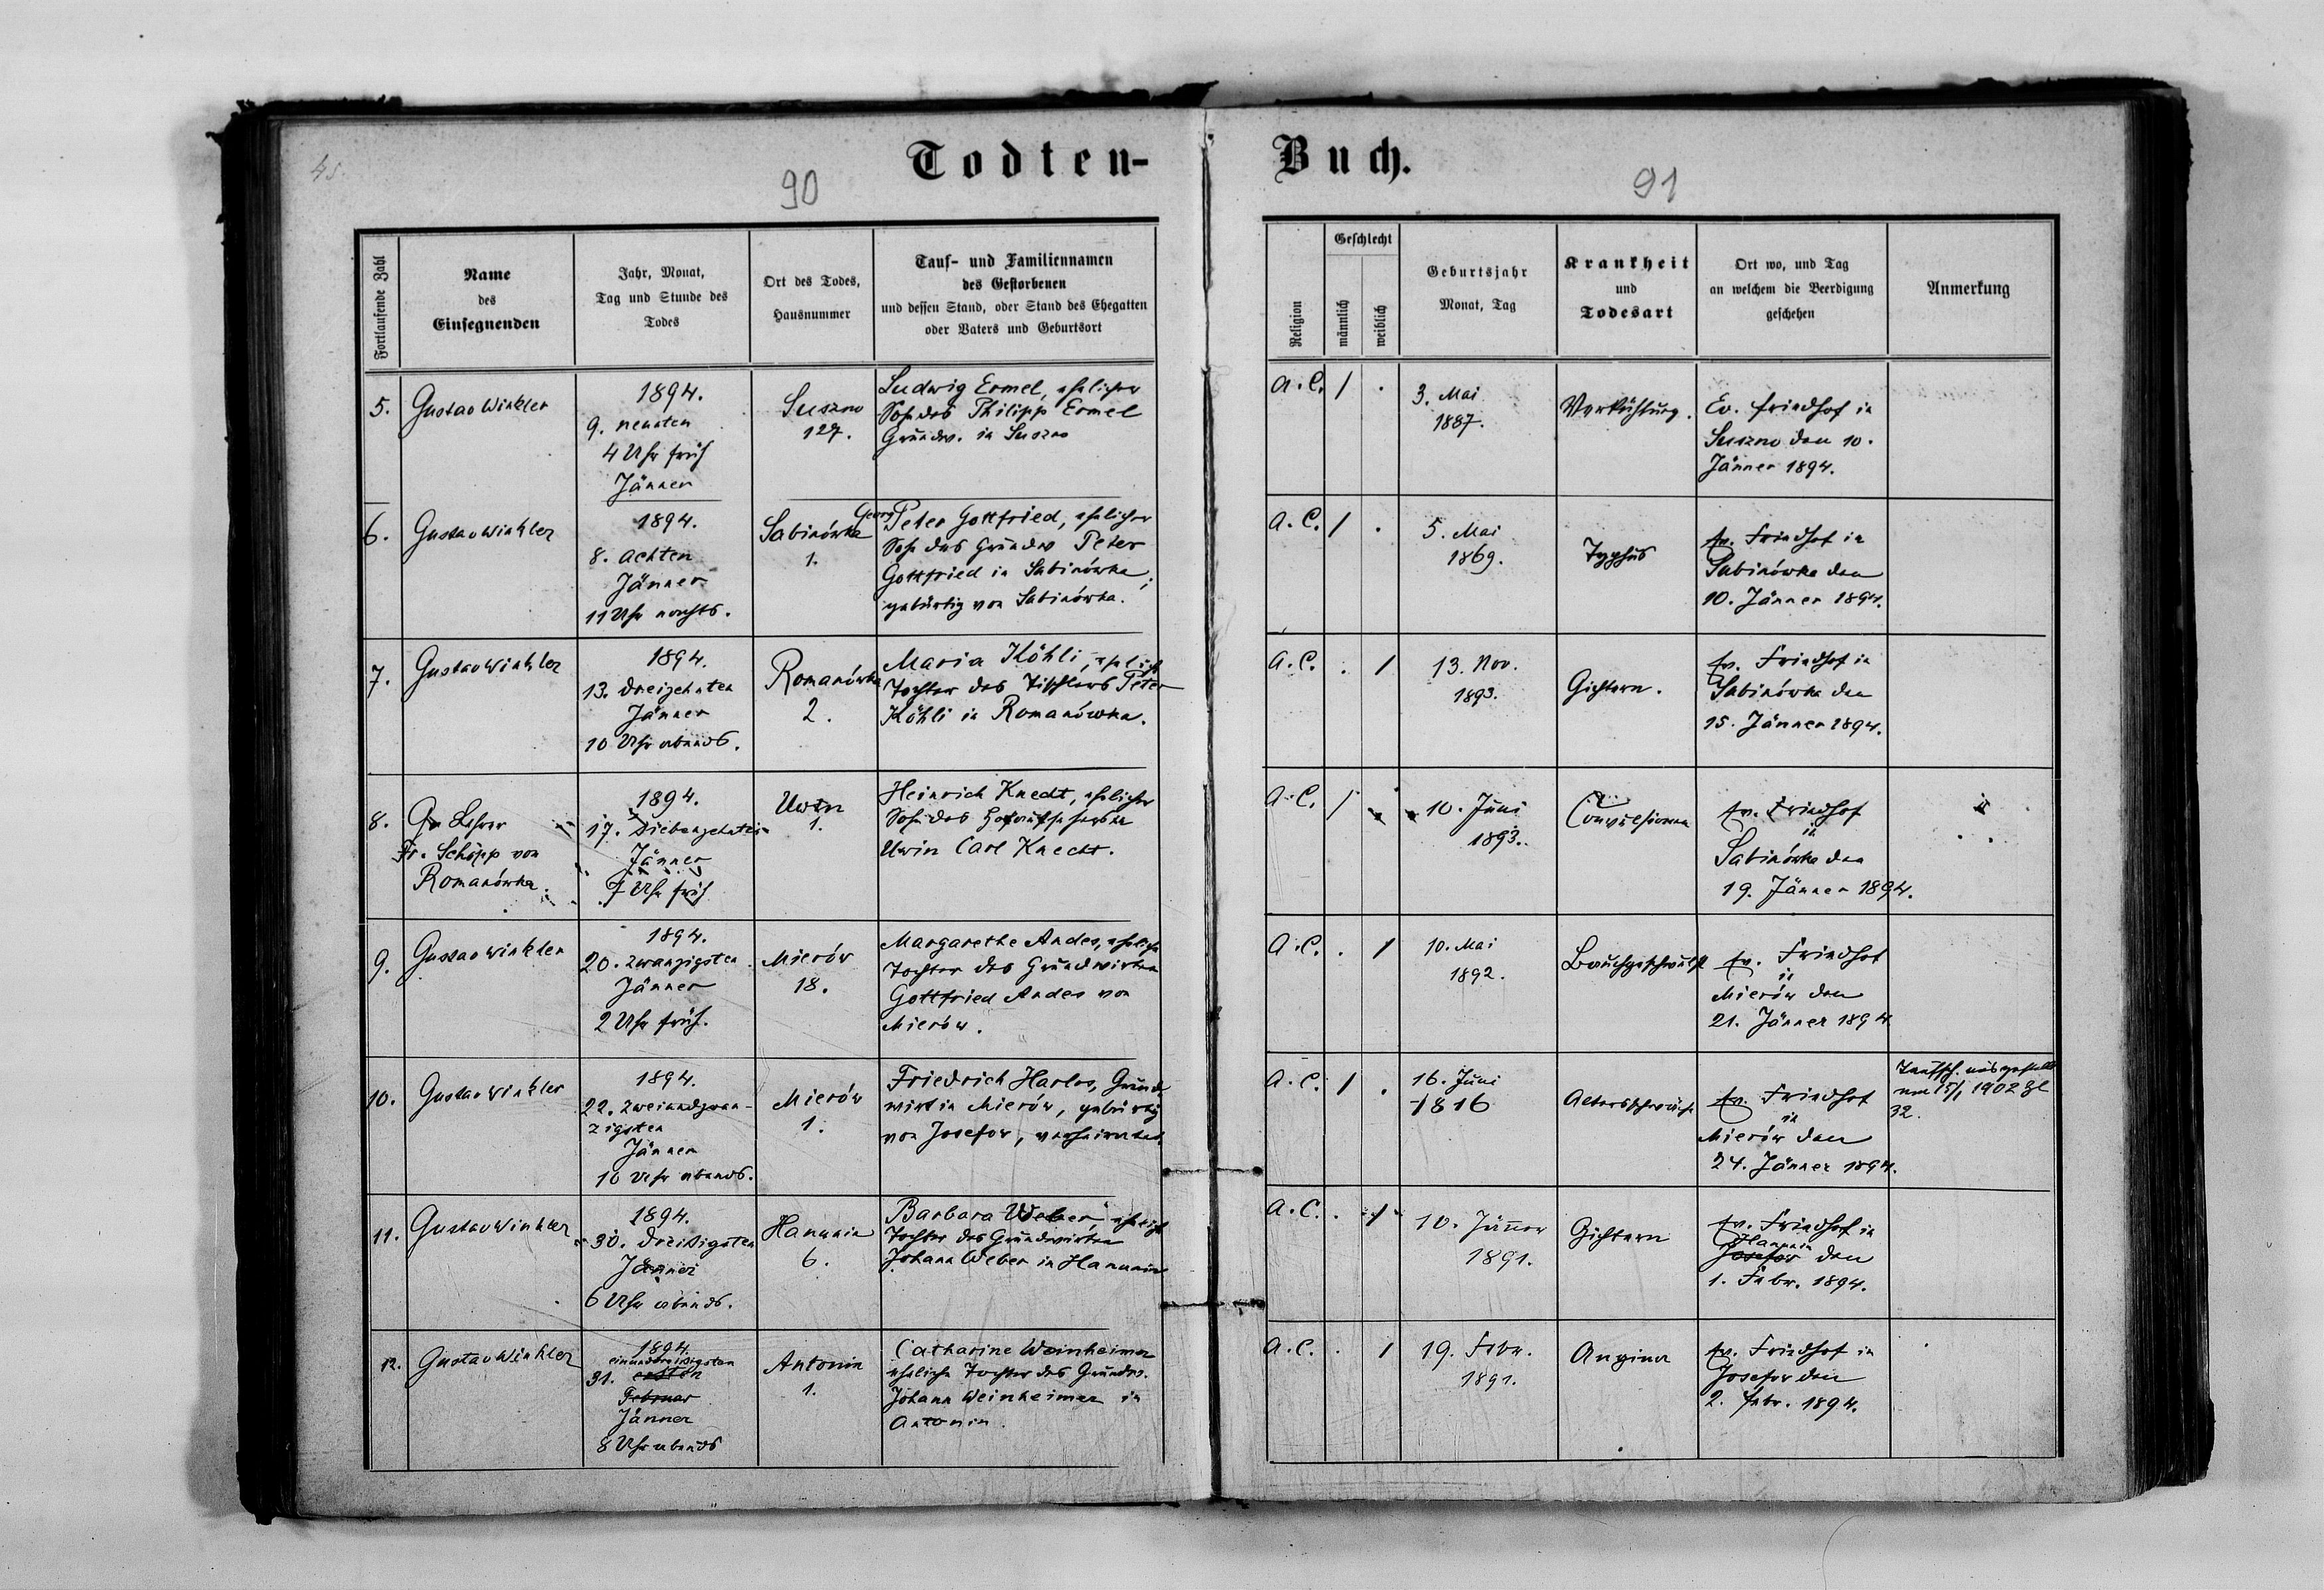 45.
Todten-
90
Fortlaufende Zahl
Name
des
Einsegnenden
Jahr, Monat,
Tag und Stunde des
Todes
Ort des Todes,
Hausnummer
Tauf- und Familiennamen
des Gestorbenen
und dessen Stand, oder Stand des Ehegatten
oder Vaters und Geburtsort
5.
Gustav Winkler
1894.
9. neunten
4 Uhr früh
Jänner
Suszno
127.
Ludwig Ermel, ehelicher
Sohn des Philipp Ermel
Grundw. in Suszno
6.
Gustav Winkler
1894.
8. achten
Jänner
11 Uhr nachts.
Sabinówka
1.
Georg
Peter Gottfried, ehelicher
Sohn des Grundw Peter
Gottfried in Sabinówka;
gebürtig von Sabinówka.
7.
Gustav Winkler
1894.
13. dreizehnten
Jänner
10 Uhr abends.
Romanówka
2.
Maria Köhli, ehelich
Tochter des Tischlers Peter
Köhli in Romanówka.
8.
Lehrer
Fr. Schöpp von
Romanówka.
1894.
17. Siebenzehnten
Jänner
7 Uhr früh
Uwin
1.
Heinrich Knecht, ehelicher
Sohn des
Uwin Carl Knecht.
9.
Gustav Winkler
1894.
20. zwanzigsten
Jänner
2 Uhr früh.
Mierów
18.
Margarethe Andes, eheliche
Tochter des Grundwirten
Gottfried Andes von
Mierów.
10.
Gustav Winkler
1894.
22. zweiundzwan-
zigsten
Jänner
10 Uhr abends.
Mierów
1.
Friedrich Harlos, Grund
wirt in Mierów, gebürtig
von Josefow, verheiratet
11.
Gustav Winkler
1894.
30. dreißigsten
Jänner
6 Uhr abends.
Hanunin
6.
Barbara Weber, ehelich
Tochter des Grundwirten
Johann Weber in Hanunin
12.
Gustav Winkler
1894.
einunddreißigsten
31. ersten
Februar
Jänner
8 Uhr abends
Antonin
1.
Catharine Weinheimer
eheliche Tochter des Grundw.
Johann Weinheimer in
Antonin.
Buch.
91
Religion
Geschlecht
männlich
weiblich
Geburtsjahr
Monat, Tag
Krankheit
und
Todesart
Ort wo, und Tag
an welchem die Beerdigung
geschehen
Anmerkung
A. C. / .
3. Mai
1887.
Verkühlung.
Ev. Friedhof in
Suszno den 10.
Jänner 1894.
A. C. / .
5. Mai
1869.
Typhus
Ev. Friedhof in
Sabinówka den
10. Jänner 1894.
A. C. . /
13. Nov.
1893.
Gichtern.
Ev. Friedhof in
Sabinówka den
15. Jänner 1894.
A. C. / .
10. Juni
1893.
Convulsionen
Ev. Friedhof
in
Sabinówka den
19. Jänner 1894.
A. C. . /
10. Mai
1892.
Bauchgeschwulst
Ev. Friedhof
in
Mierów den
21. Jänner 1894
A. C. / .
16. Juni
1816
Altersschwäche
Ev. Friedhof
in
Mierów den
24. Jänner 1894.
Taufsch. ausgestellt
am 15/1 1902 Zl
32.
A. C. . /
10. Jänner
1891.
Gichtern
Ev. Friedhof in
Hanunin
Josefow den
1. Febr. 1894.
A. C. . /
19. Febr.
1891.
Angina
Ev. Friedhof in
Josefow den
2. Febr. 1894.